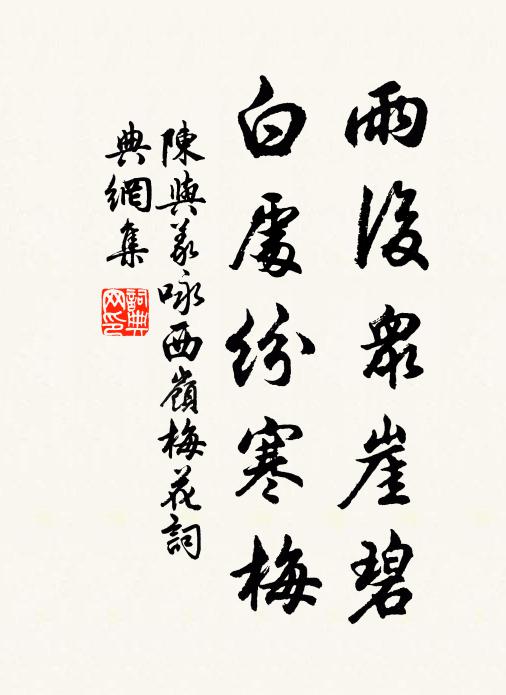 雨後眾崖碧
白處紛寒梅
陳與義咏西嶺梅花詞
典網集
詞典網印